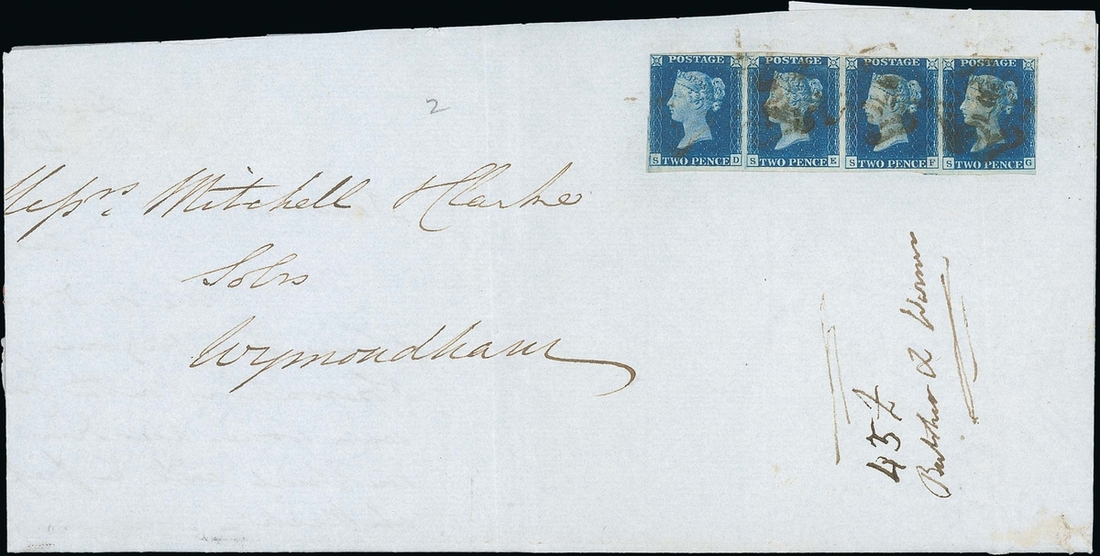 POSTAGE POSTAGE POSTAGE POSTAGE
S TWO PENCE D S TWO PENCE E S TWO PENCE F S TWO PENCE G
2
Messrs. Mitchell & Clarke
Solrs
Wymondham
457